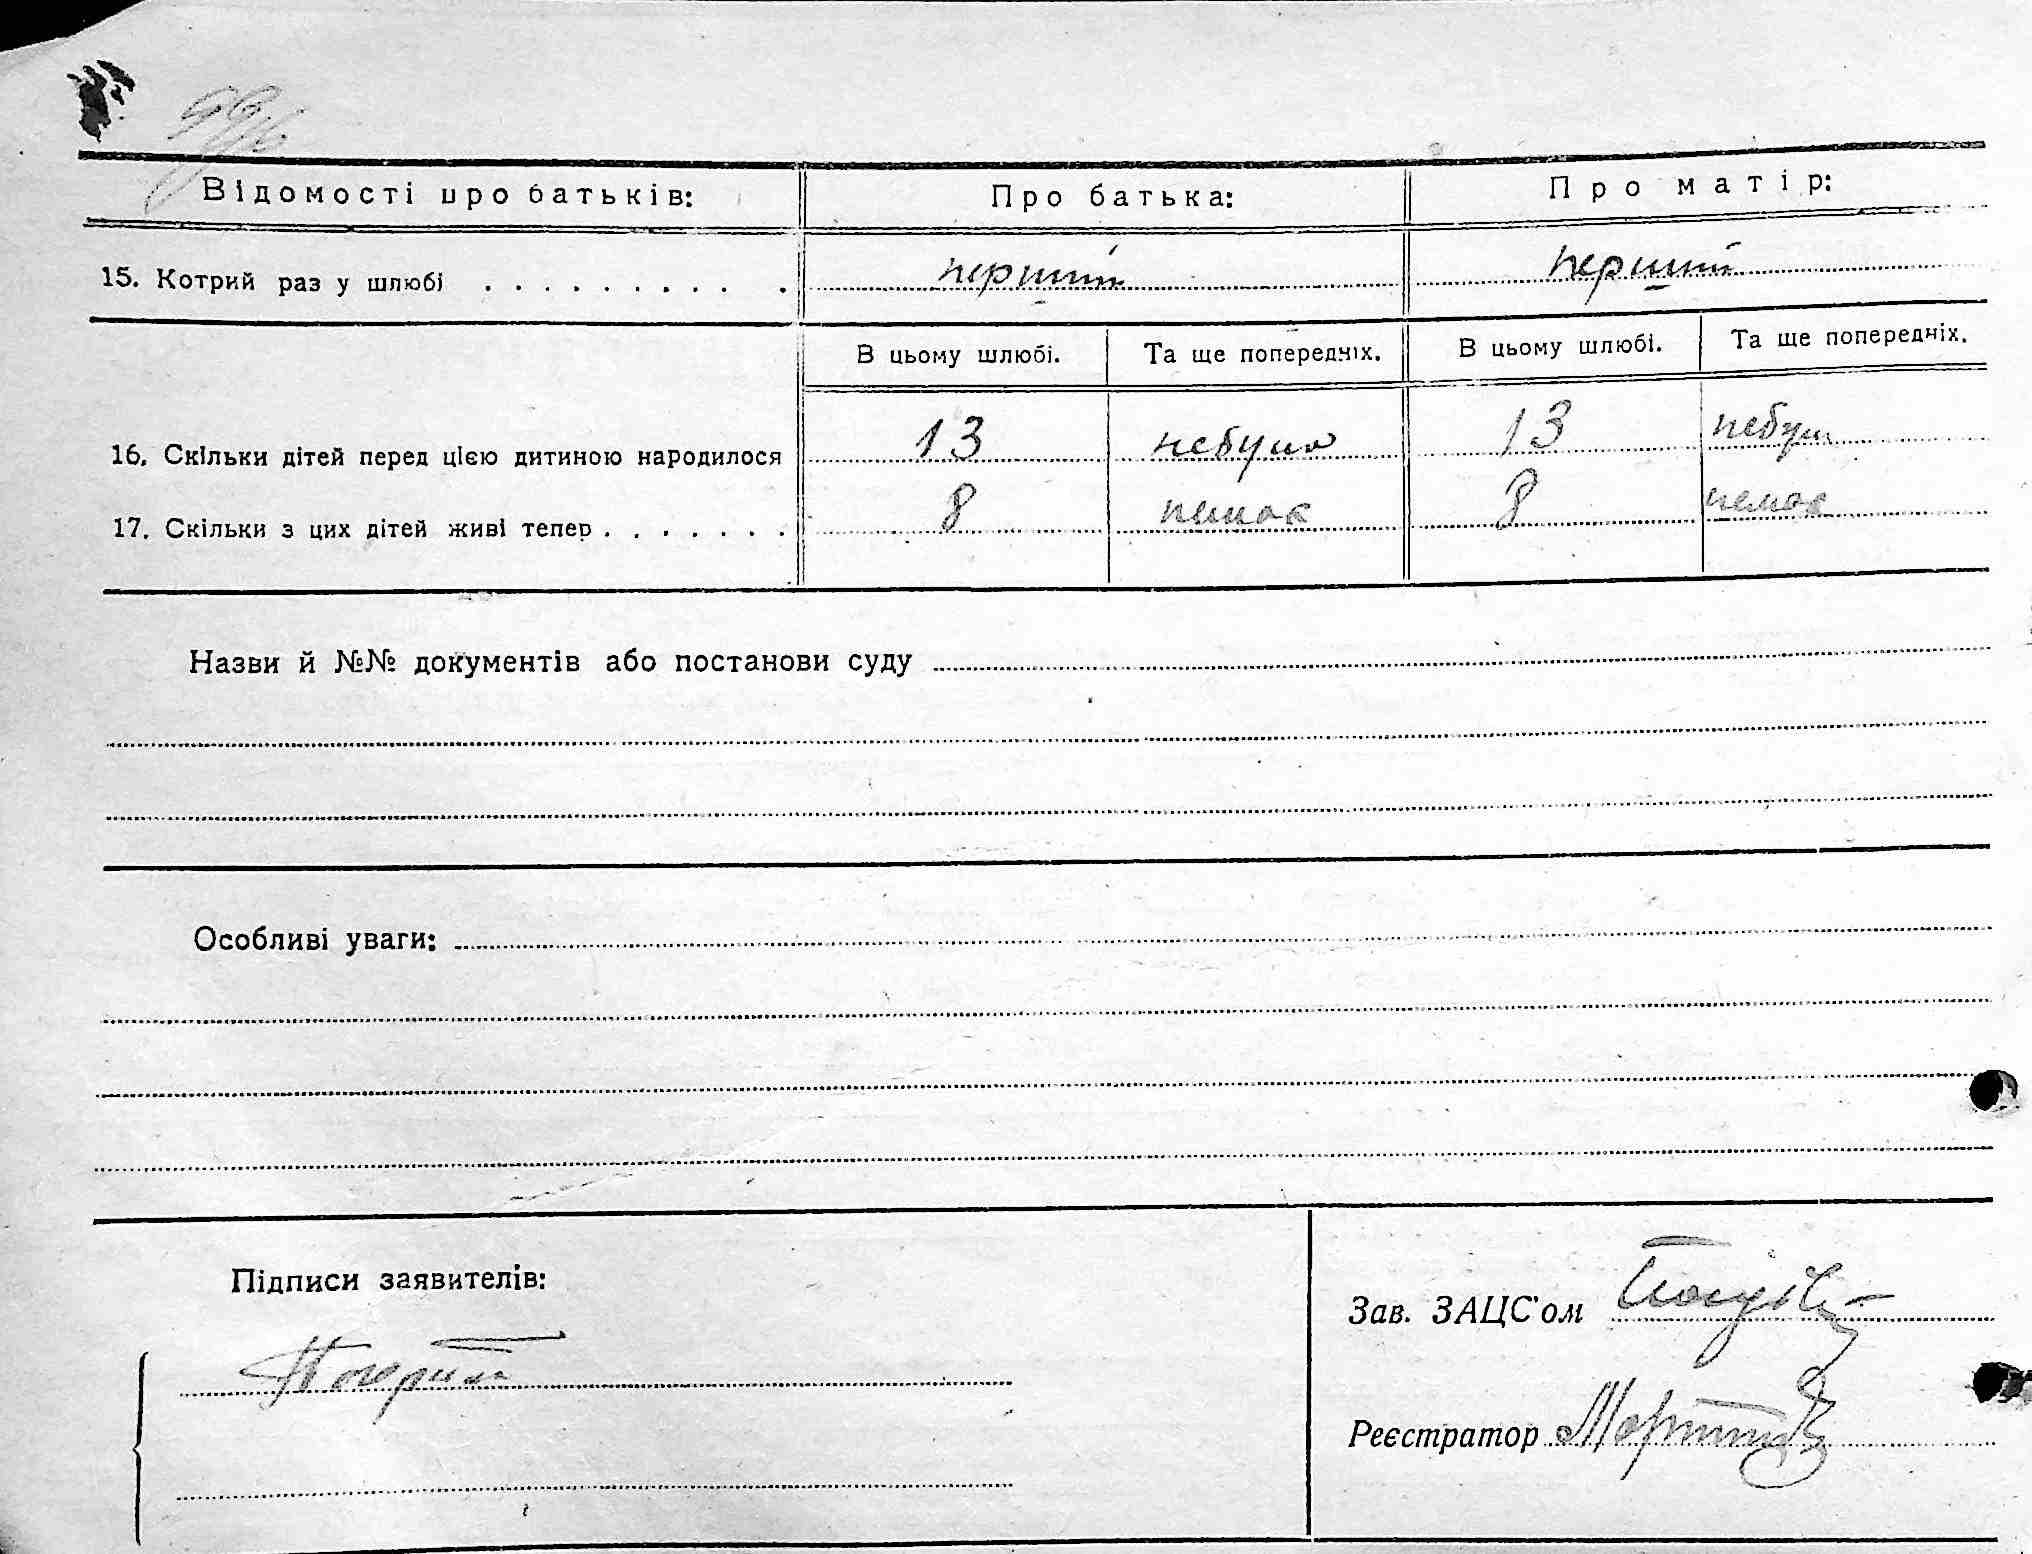 Відомості про батьків: Про батька: Про матір:
15. Котрий раз у шлюбі . . . . . . . . . . перший перший
В цьому шлюбі. Та ще попередніх. В цьому шлюбі. Та ще попередніх.
16. Скільки дітей перед цією дитиною народилося 13 небуло 13 небуло
17. Скільки з цих дітей живі тепер . . . . . . . 8 немає 8 немає
Назви й №№ документів або постанови суду
Особливі уваги:
Підписи заявителів:
Зав. ЗАЦС'ом
Реєстратор